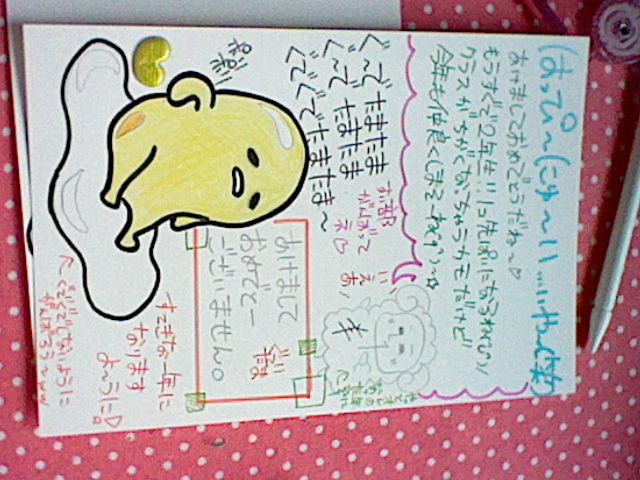 はっぴ〜にゅ〜いいいやぁ
あけましておめでとうだね〜♡
もうすぐで2年生!!!先ぱいになるわね(^^)ノ
クラスがちがくなっちゃうカモだけど
今年も仲良くしましょうね(^^)☆
ぐ〜でたまたま
ぐ〜でたまたま
ぐでぐでたまたま〜
がんばって
いぇあ!
羊
あけまして
おめでとー
ございません。
ぐでたま
すてきな一年に
なります
よ〜うに!
ぐでぐでしないように
がんばろう〜ww